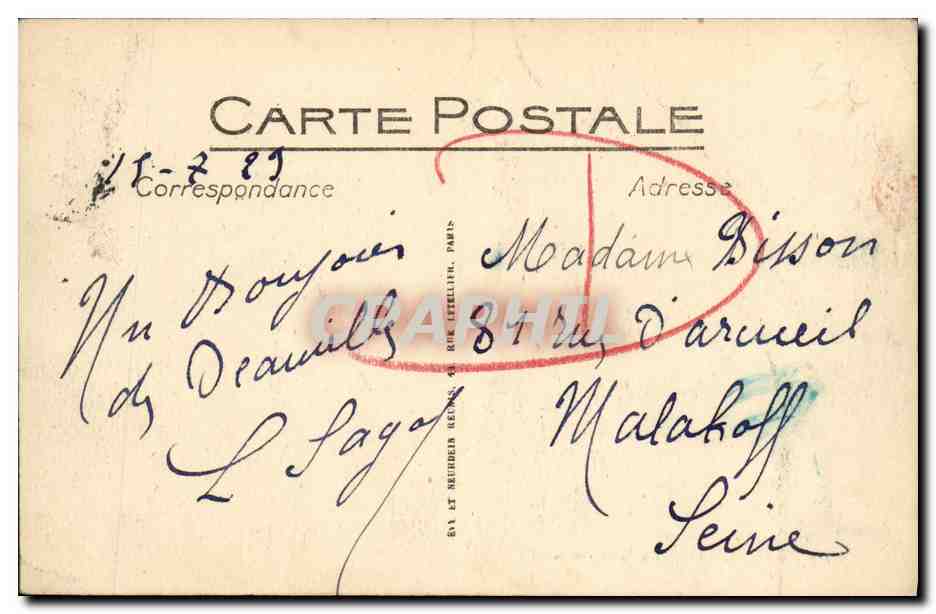 CARTE POSTALE
15-7 29
Correspondance
Un Bonjour
de Deauville
L Sagot
LEVY ET NEURDEIN REUNIS, 44 RUE LETELLIER, PARIS
Adresse
Madame Bisson
81 rue d'arcueil
Malakoff
Seine
CPAPHIL